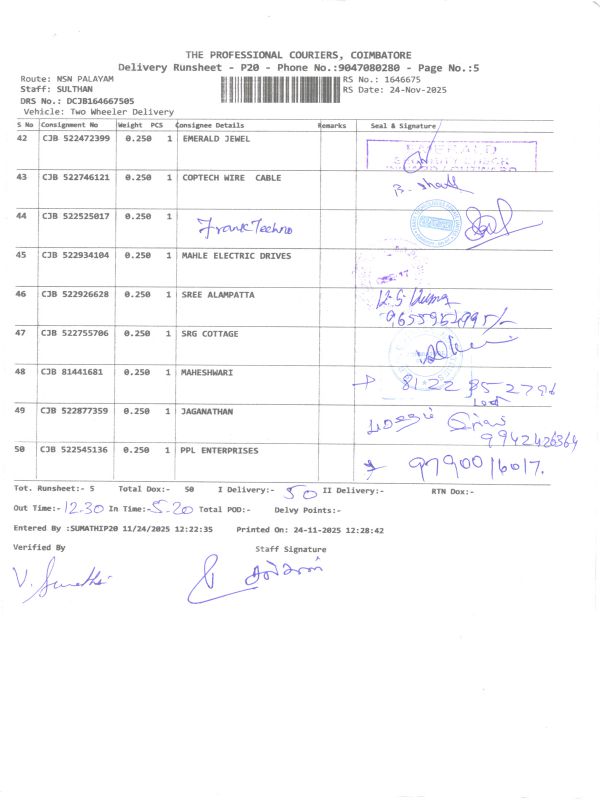 THE PROFESSIONAL COURIERS, COIMBATORE
Delivery Runsheet - P20 - Phone No.:9047080280 - Page No.:5
Route: MSN PALAYAM RS No.: 1646675
Staff: SULTHAN RS Date: 24-Nov-2025
DRS No.: DCJB164667505
Vehicle: Two Wheeler Delivery
S No Consignment No Weight PCS Consignee Details Remarks Seal & Signature
42 CJB 522472399 0.250 1 EMERALD JEWEL EMERALD
43 CJB 522746121 0.250 1 COPTECH WIRE CABLE
44 CJB 522525017 0.250 1 Frank Techno
45 CJB 522934104 0.250 1 MAHLE ELECTRIC DRIVES
46 CJB 522926628 0.250 1 SREE ALAMPATTA
47 CJB 522755706 0.250 1 SRG COTTAGE
48 CJB 81441681 0.250 1 MAHESHWARI
49 CJB 522877359 0.250 1 JAGANATHAN
9942426364
50 CJB 522545136 0.250 1 PPL ENTERPRISES
Tot. Runsheet:- 5 Total Dox:- 50 I Delivery:- 50 II Delivery:- RTN Dox:-
Out Time:- 12.30 In Time:- 5.20 Total POD:- Delvy Points:-
Entered By :SUMATHIP20 11/24/2025 12:22:35 Printed On: 24-11-2025 12:28:42
Verified By Staff Signature
V. Sumathi